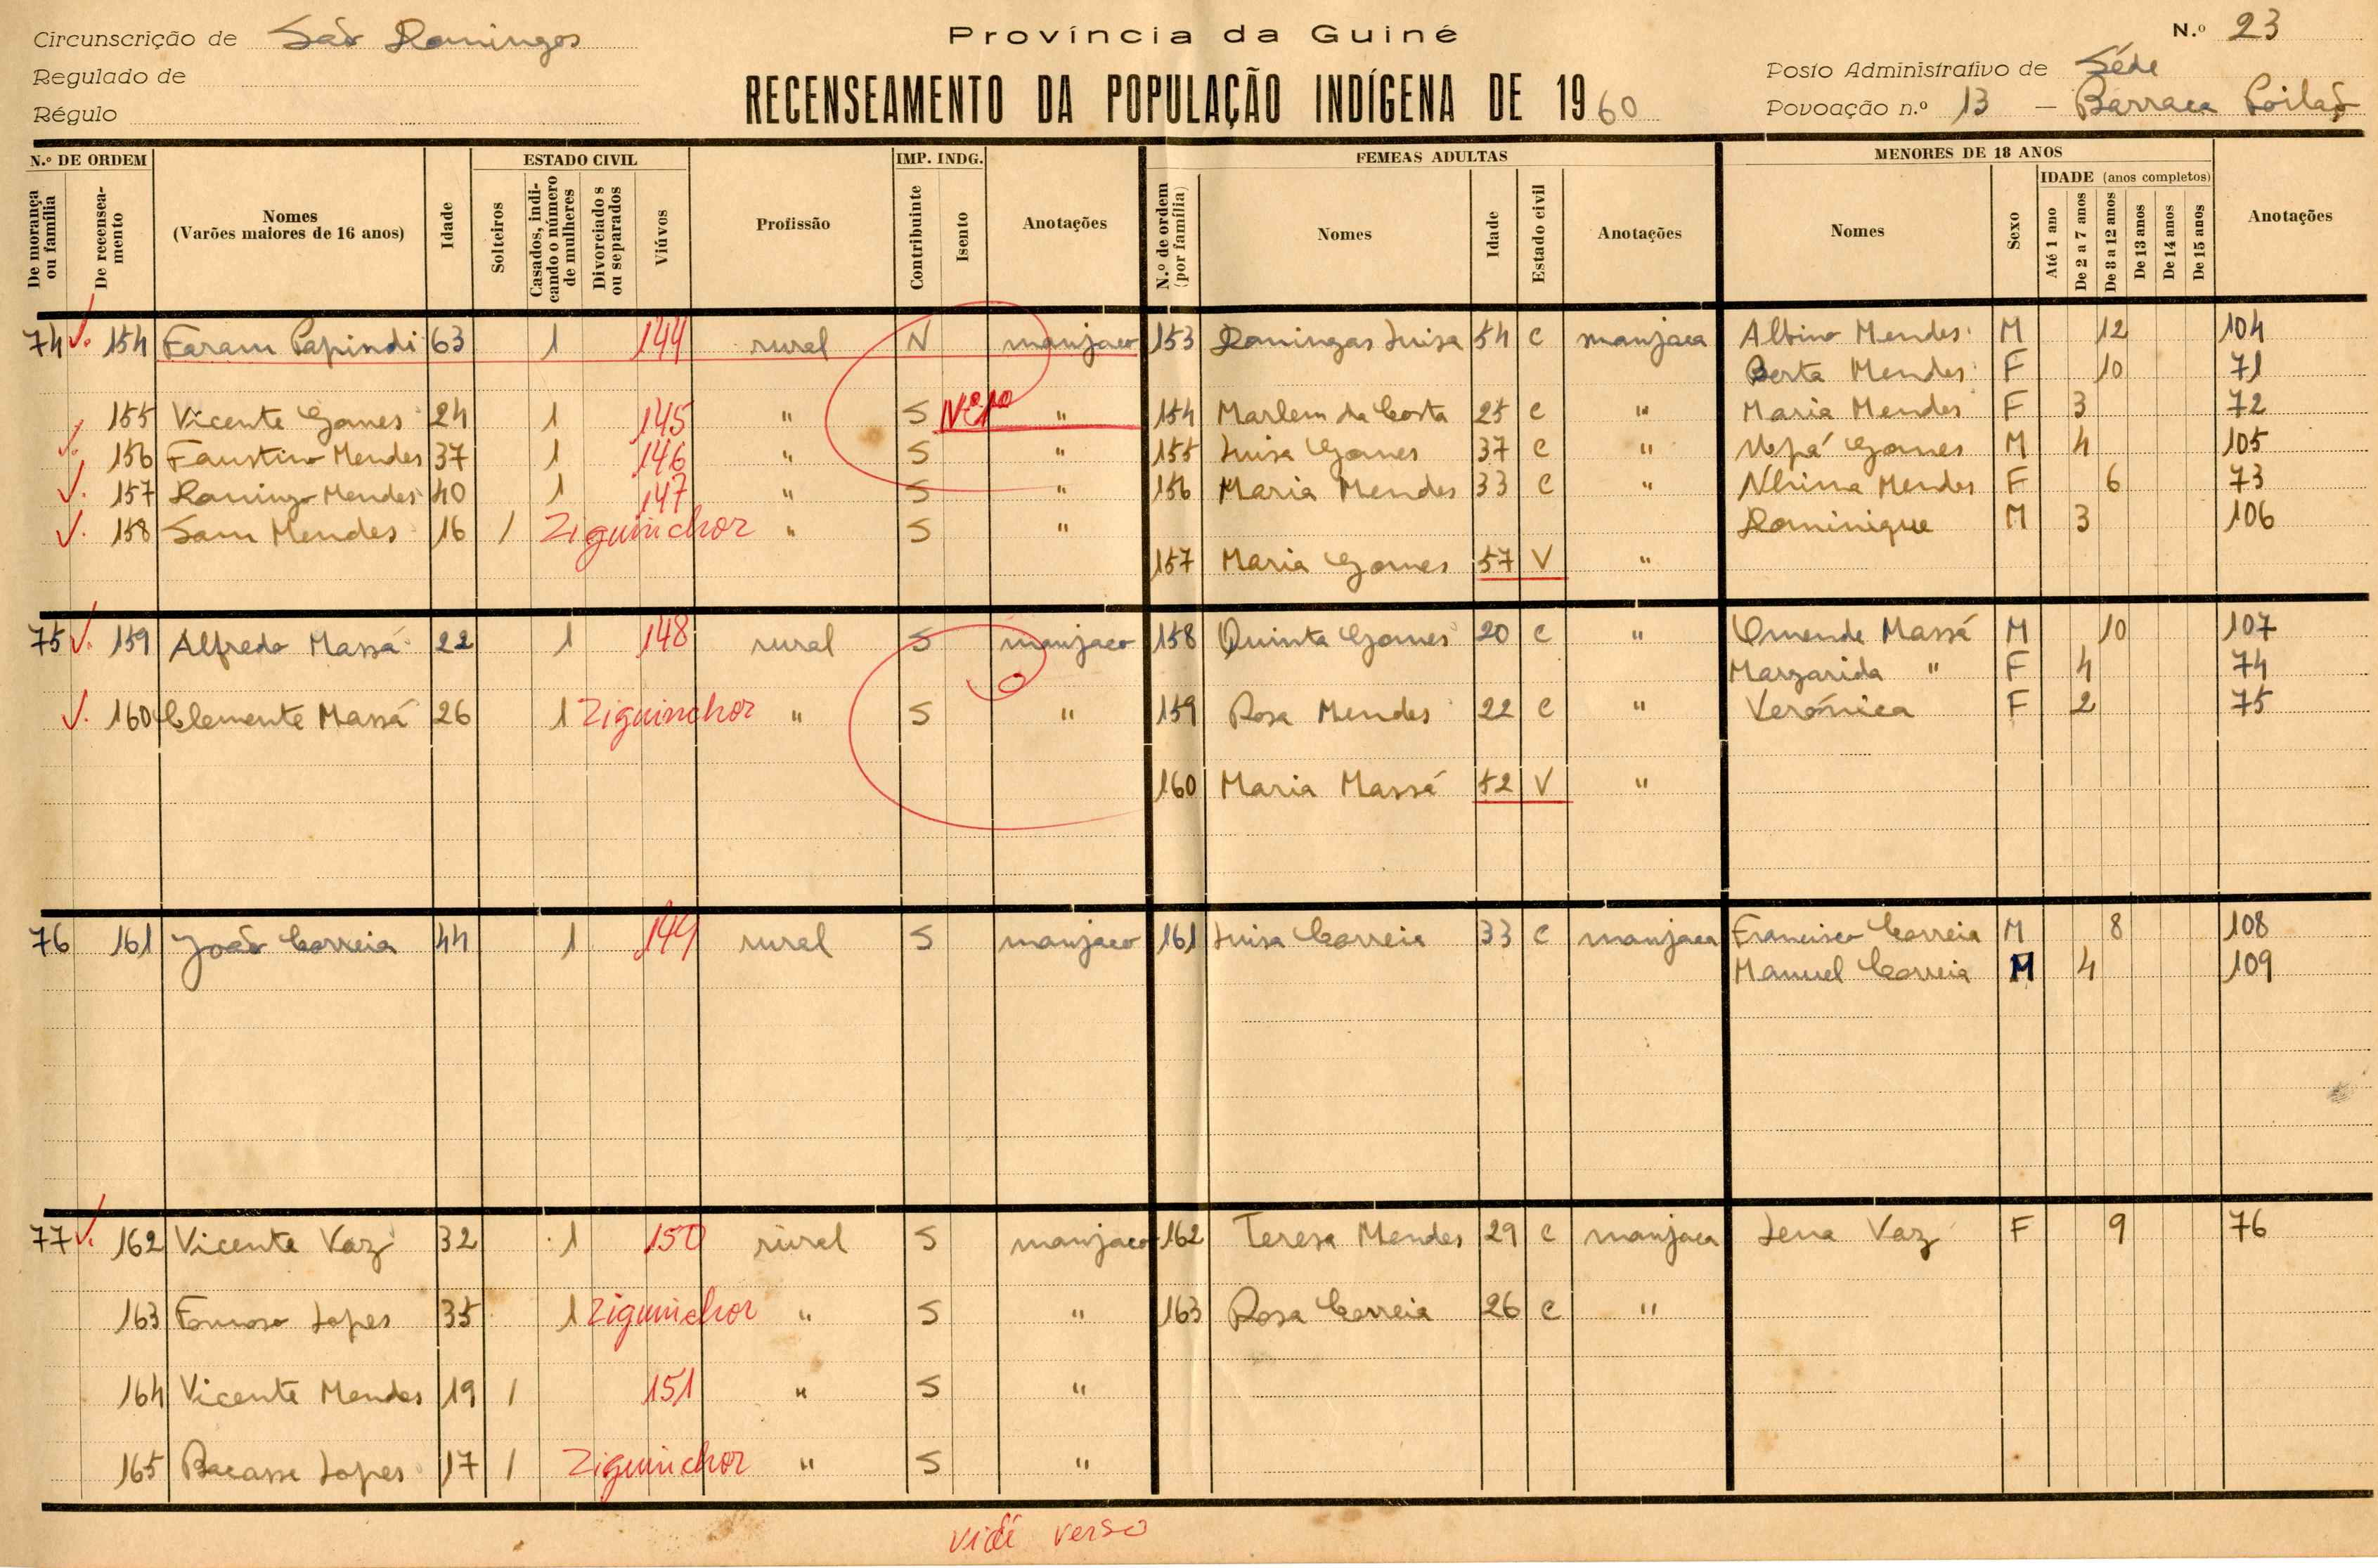 Circunscrição de São Domingos
Província da Guiné
N.º 23
Regulado de
Régulo
RECENSEAMENTO DA POPULAÇÃO INDÍGENA DE 1960
Posto Administrativo de Séde
Povoação n.º 13 — Barraca Poilão
N.º DE ORDEM
De morança ou família
De recenseamento
Nomes
(Varões maiores de 16 anos)
Idade
ESTADO CIVIL
Solteiros
Casados, indicando o número de mulheres
Divorciados ou separados
Viúvos
Profissão
IMP. INDG.
Contribuinte
Isento
Anotações
FEMEAS ADULTAS
N.º de ordem (por família)
Nomes
Idade
Estado civil
Anotações
MENORES DE 18 ANOS
Nomes
Sexo
IDADE (anos completos)
Até 1 ano
De 2 a 7 anos
De 8 a 12 anos
De 13 anos
De 14 anos
De 15 anos
Anotações
74 154 Faram Papindi 63 1 144 rural N manjaco 153 Domingas Luisa 54 C manjaca Albino Mendes M 12 104
Berta Mendes F 10 71
155 Vicente Gomes 24 1 145 " S " 154 Marlem da Costa 25 C " Maria Mendes F 3 72
156 Faustino Mendes 37 1 146 " S " 155 Luisa Gomes 37 C " Nepá Gomes M 4 105
157 Domingo Mendes 40 1 147 " S " 156 Maria Mendes 33 C " Nhima Mendes F 6 73
158 Sam Mendes 16 / Ziguinchor " S " Dominique M 3 106
157 Maria Gomes 57 V "
75 159 Alfredo Massá 22 1 148 rural S manjaco 158 Quinta Gomes 20 C " Quende Massá M 10 107
Margarida " F 4 74
160 Clemente Massá 26 1 Ziguinchor " S " 159 Rosa Mendes 22 C " Verónica F 2 75
160 Maria Massá 52 V "
76 161 João Correia 44 1 149 rural S manjaco 161 Luisa Correia 33 C manjaca Francisco Correia M 8 108
Manuel Correia M 4 109
77 162 Vicente Vaz 32 1 150 rural S manjaco 162 Teresa Mendes 29 C manjaca Lena Vaz F 9 76
163 Lopes 35 1 Ziguinchor " S " 163 Rosa Correia 26 C "
164 Vicente Mendes 19 / 151 " S "
165 Bacasse Lopes 17 / Ziguinchor " S "
vidé verso